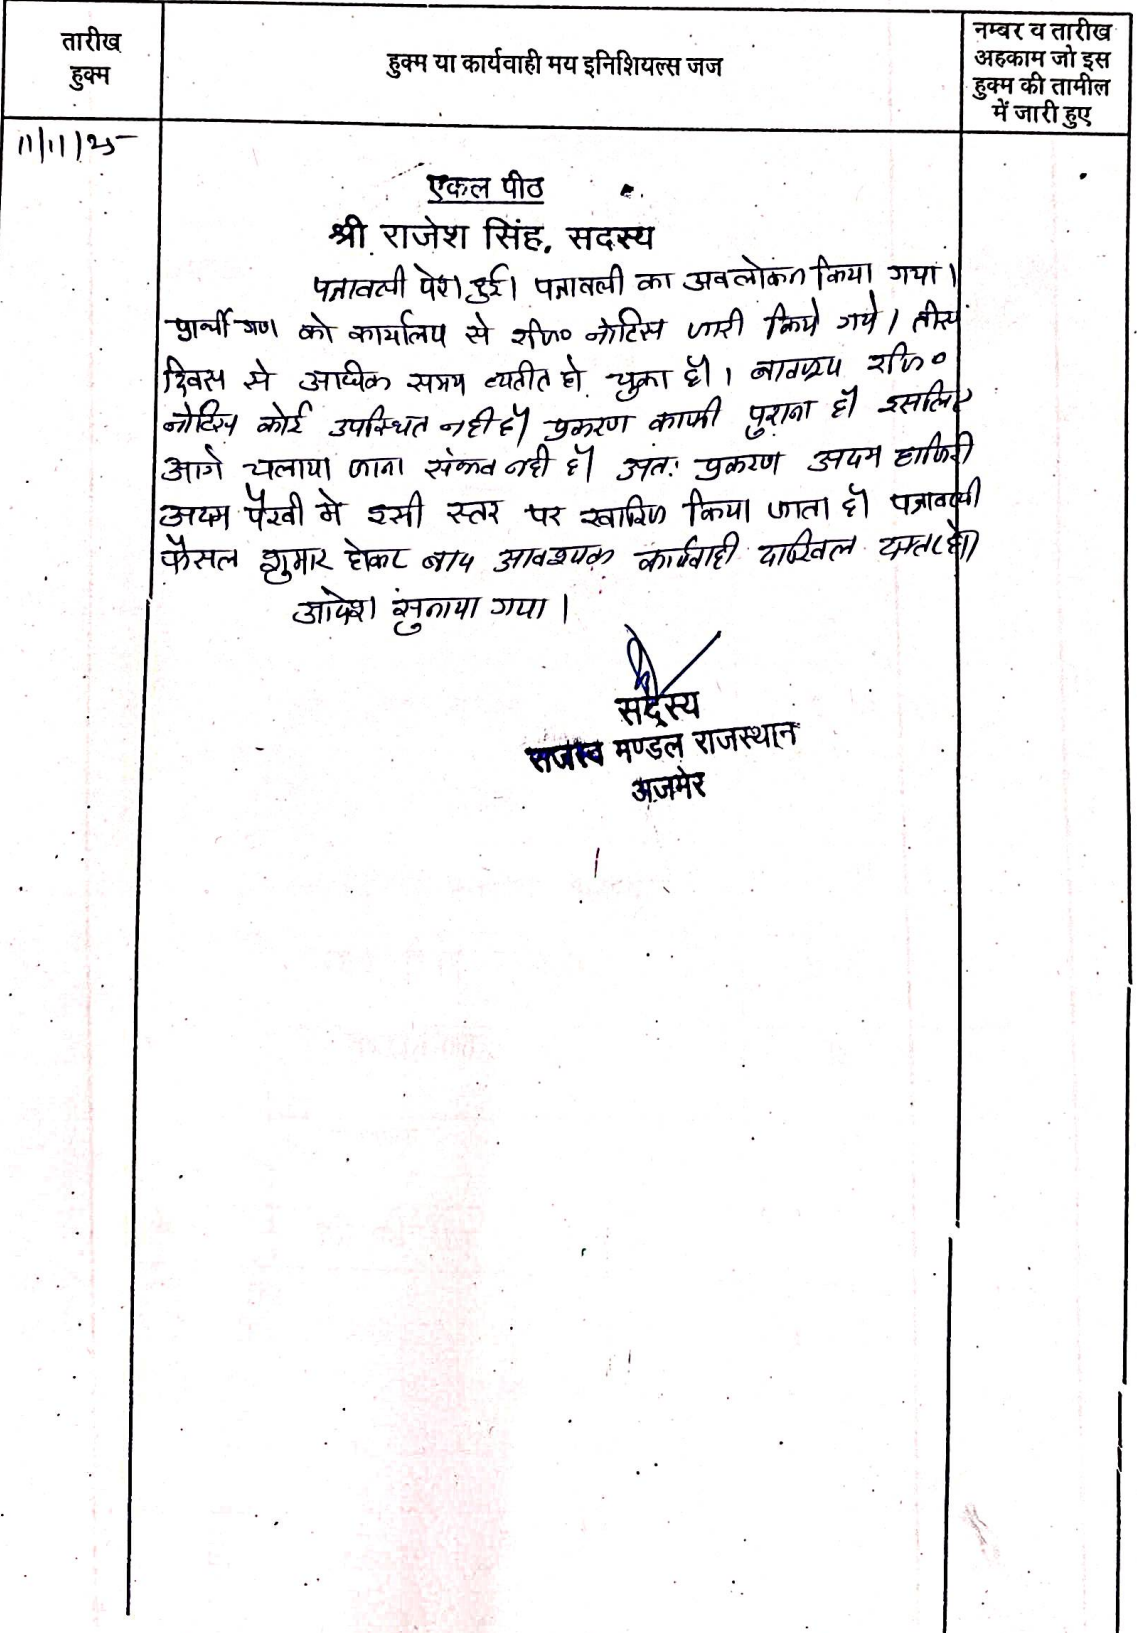 तारीख
हुक्म
हुक्म या कार्यवाही मय इनिशियल्स जज
नम्बर व तारीख
अहकाम जो इस
हुक्म की तामील
में जारी हुए
11/11/25
एकल पीठ
श्री राजेश सिंह, सदस्य
पत्रावली पेश हुई। पत्रावली का अवलोकन किया गया।
प्रार्थीगण को कार्यालय से रजि० नोटिस जारी किये गये। तीस
दिवस से अधिक समय व्यतीत हो चुका है। बावजूद रजि०
नोटिस कोई उपस्थित नही है। प्रकरण काफी पुराना है। इसलिए
आगे चलाया जाना संभव नही है। अतः प्रकरण अदम हाजिरी
अदम पैरवी मे इसी स्तर पर खारिज किया जाता है। पत्रावली
फैसल शुमार होकर बाद आवश्यक कार्यवाही दाखिल दफ्तर हो।
आदेश सुनाया गया।
सदस्य
राजस्व मण्डल राजस्थान
अजमेर